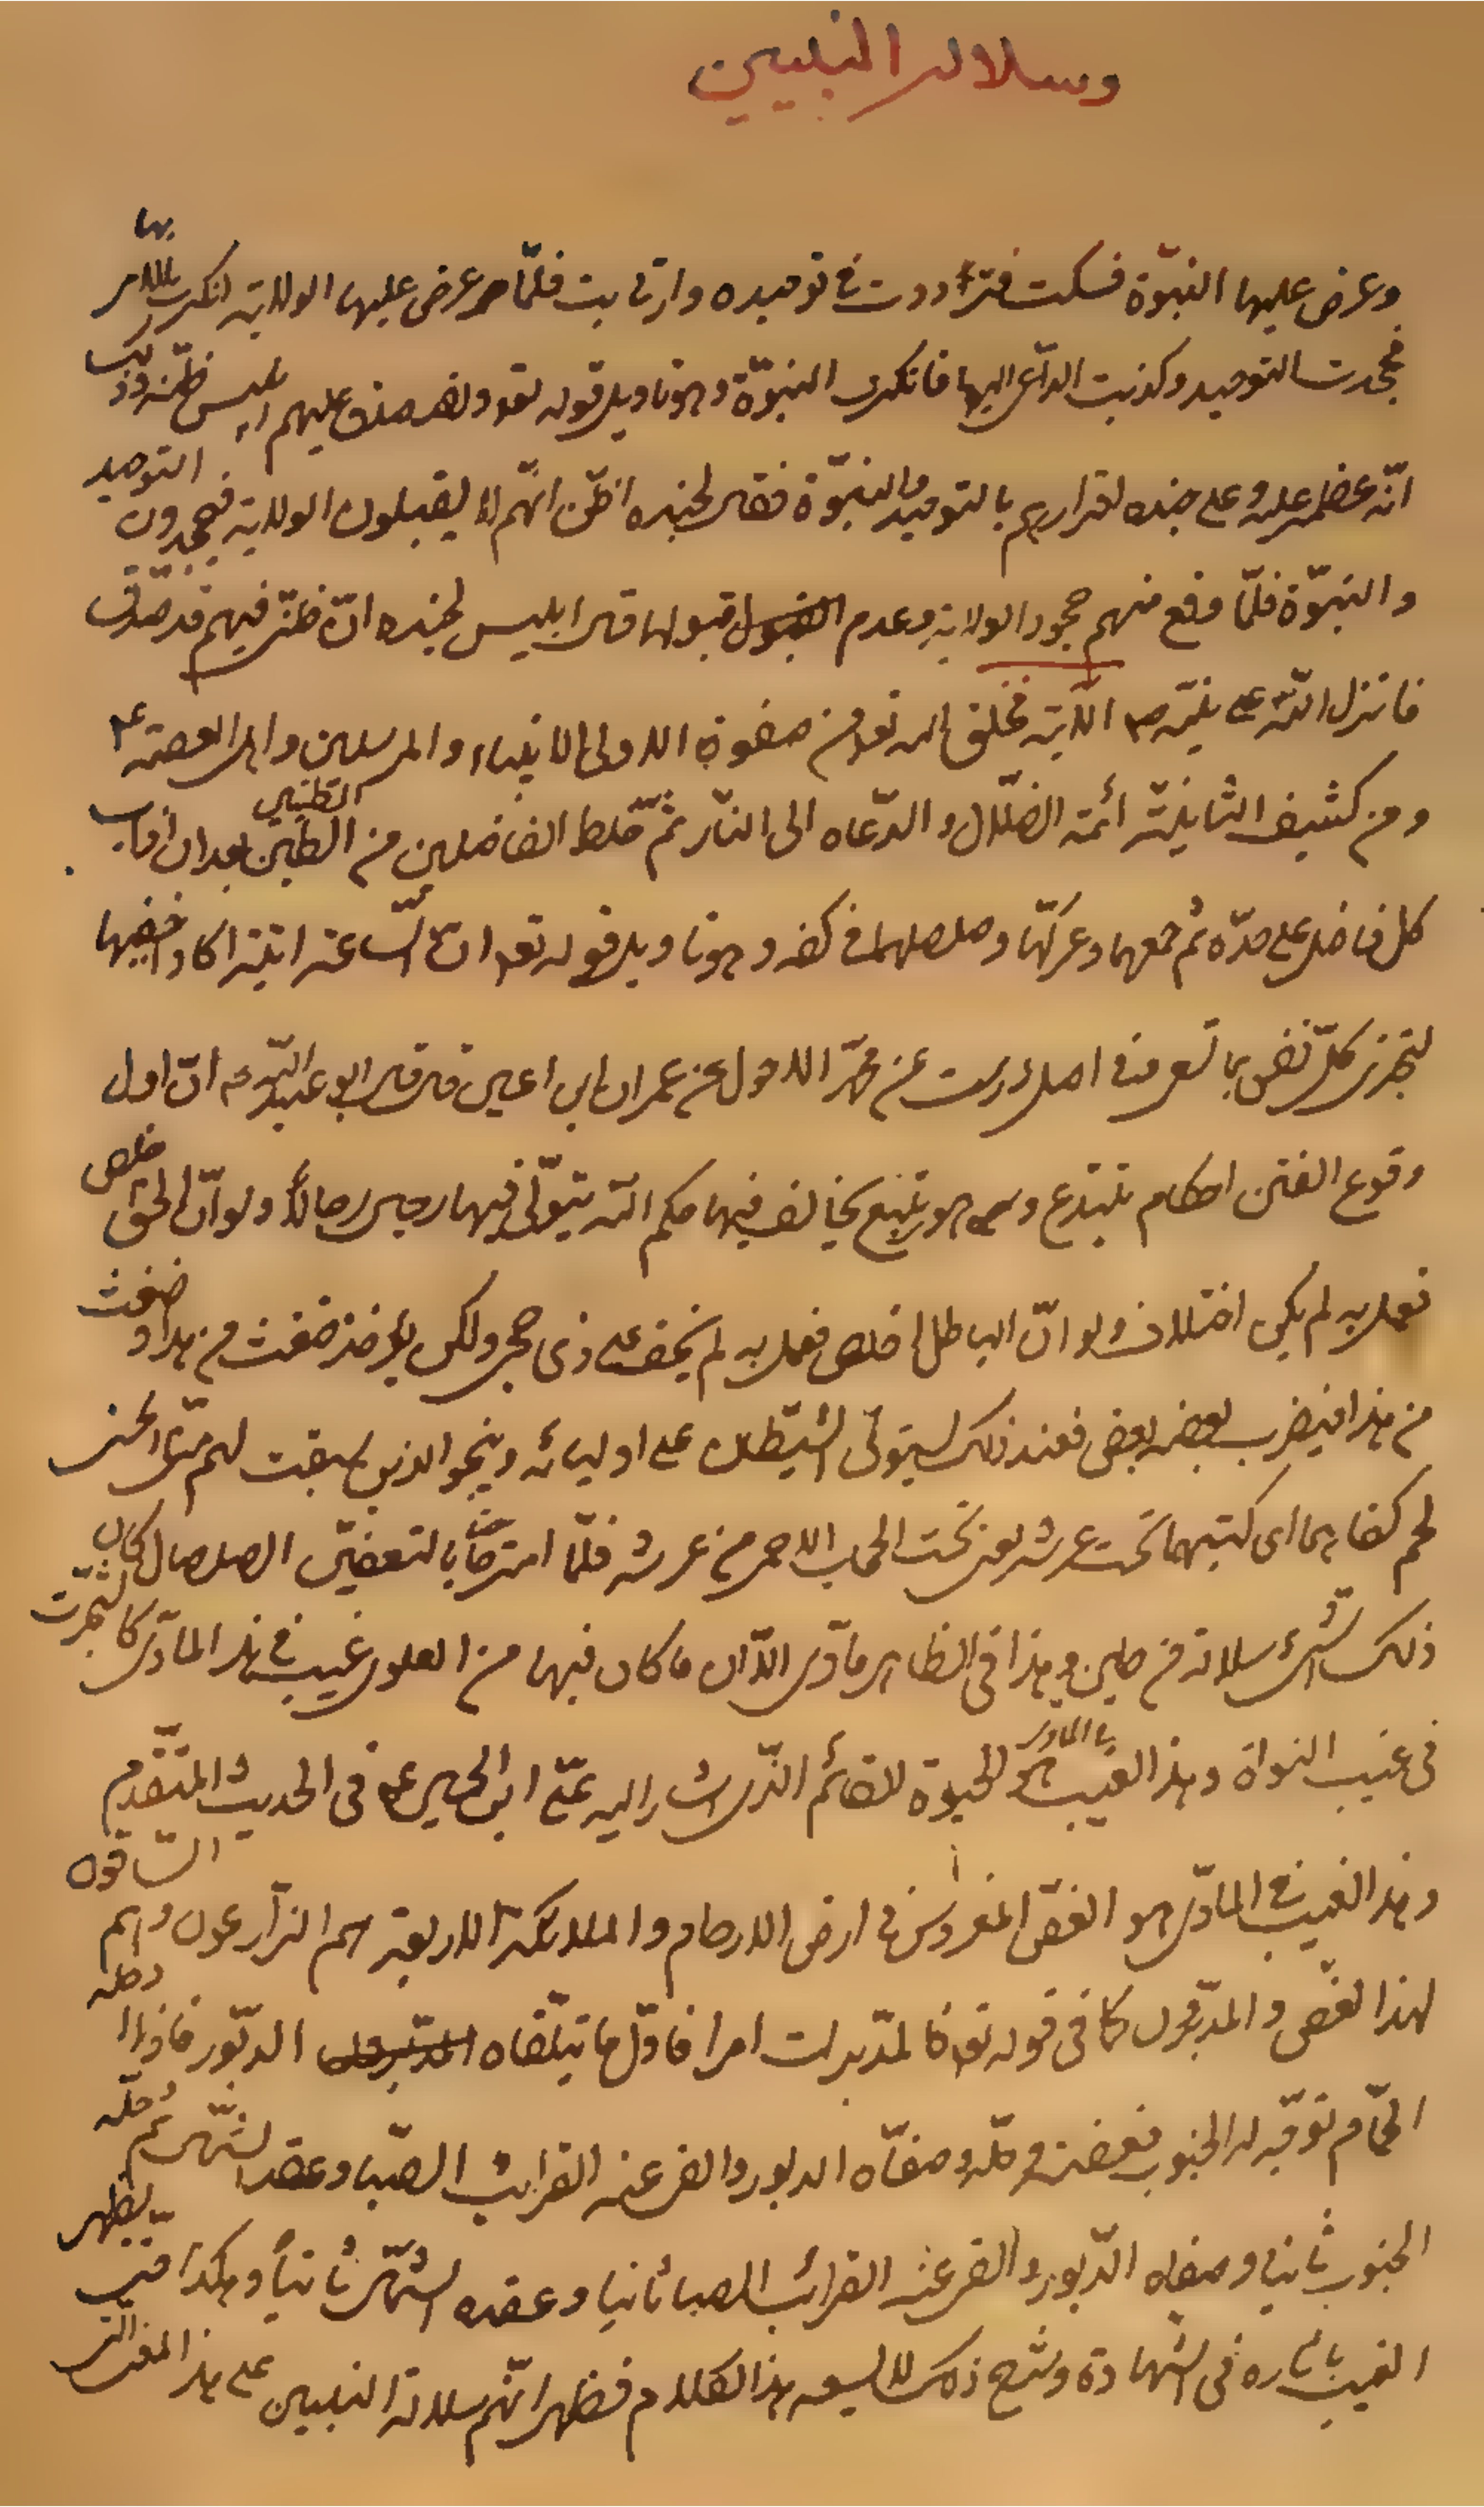 وسلالة النبيين
وعرض عليها النبوّة فسكت فترددت في توحيده وارتابت فلمّا عرض عليها الولاية انكرت بها
فجحدت التوحيد وكذبت الداعي اليها فانكرت النبوّة وهو تاويل قوله تعالى ولقد صدق عليهم ابليس ظنّه وذلك
انّه عظم عليه وعلى جنده اقرارهم بالتوحيد والنبوّة فقال لجنده اظنّ انّهم لا يقبلون الولاية فيجحدون التوحيد
والنبوّة فلمّا وقع منهم جحود الولاية وعدم قبولها قال ابليس لجنده انّ ظنّي فيهم قد صدق
فانزل اللّه على نبيّه ص الآية فخلق اللّه تعالى من صفوة الاولى الانبياء والمرسلين واهل العصمة ع
ومن كثيف الثانية ائمّة الضلال والدّعاة الى النّار ثمّ خلط الفاضلين من الطينتين بعد ان اذاب
كل فاضل على حدّه ثم جمعهما وعركها وصلصلهما في كفه وهو تاويل قوله تعالى انّ السّاعة اتية اكاد اخفيها
لتجزى كلّ نفس بما تسعى وفي اصل درست عن محمّد الاحول عن عمران ابن اعين قال قال ابو عبد اللّه ع انّ اول
وقوع الفتن احكام تبتدع وهوى تتبع يخالف فيها حكم اللّه يتولّى فيها رجال رجالاً ولو انّ الحقّ خلص
فعمل به لم يكن اختلاف ولو انّ الباطل اخلص فعمل به لم يخف على ذي حجى ولكن يؤخذ ضغث من هذا وضغث
من هذا فيضرب بعضه ببعض فعند ذلك يستولى الشيطان على اوليائه وينجو الذين سبقت لهم منّا الحسنى
ثم كفأهما اى كبتهما تحت عرشه يعني تحت الحجاب الاحمر من عرشه فلمّا امتزجتا بالتعفين الصلصال كان
ذلك الشئ سلالة من طين وهذا في الظاهر مادّى الّا ان ما كان فيها من العلوى غيب في هذا المادّى كالشجرة
في غيب النواة وهذا الغيب بالمادى هو الحيوة القائم الذّى اشار اليه عليّ ابن الحسين ع في الحديث المتقدم
وهذا الغيب في المادّى هو الغصن المغروس في ارض الارحام والملائكة الاربعة هم الزارعون وهم السّاقون
لهذا الغصن والمدبّرون كما في قوله تعالى فالمدّبرات امرا فاوّل ما يتلّقاه الدبّور فاذا دخله
الحمّام توقيه الجنوب فعضنه وحلّه وصفّاه الدبور والف عنه القرائب الصّبا وعقده الشّمال ثم حلّه
الجنوب ثانيا وصفاه الدّبور والف عنه القرائب الصبا ثانيا وعقده الشّمال ثانياً وهكذا حتّى يظهر
الغيب باثاره في الشهادة وشرح ذلك لا يسعه هذا الكلام فظهر انّهم سلالة النبيين على هذا المعنى الذى